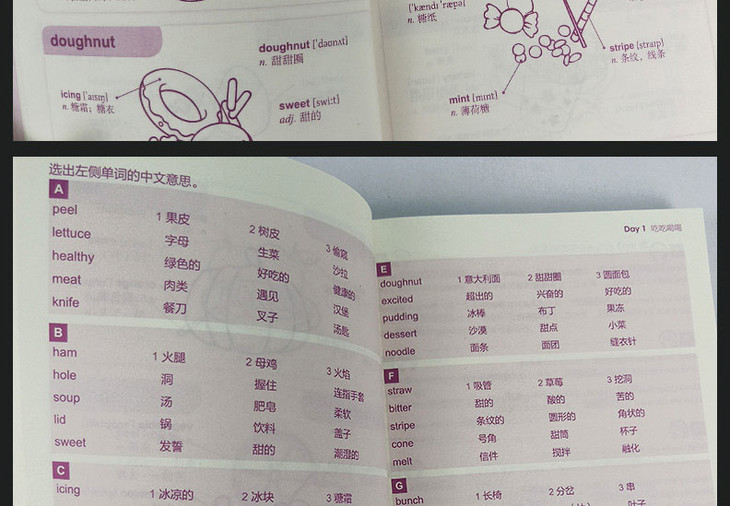 ['kændi 'ræpə]
n. 糖纸
doughnut
doughnut ['dəʊnʌt]
n. 甜甜圈
stripe [straɪp]
n. 条纹，线条
icing ['aɪsɪŋ]
n. 糖霜；糖衣
sweet [swiːt]
adj. 甜的
mint [mɪnt]
n. 薄荷糖
选出左侧单词的中文意思。
A
peel 1 果皮 2 树皮 3 偷窥
lettuce 字母 生菜 沙拉
healthy 绿色的 好吃的 健康的
meat 肉类 遇见 汉堡
knife 餐刀 叉子 汤匙
B
ham 1 火腿 2 母鸡 3 火焰
hole 洞 握住 连指手套
soup 汤 肥皂 柔软
lid 锅 饮料 盖子
sweet 发誓 甜的 潮湿的
C
icing 1 冰凉的 2 冰块 3 糖霜
Day 1 吃吃喝喝
E
doughnut 1 意大利面 2 甜甜圈 3 圆面包
excited 超出的 兴奋的 好吃的
pudding 冰棒 布丁 果冻
dessert 沙漠 甜点 小菜
noodle 面条 面团 缝衣针
F
straw 1 吸管 2 草莓 3 挖洞
bitter 甜的 酸的 苦的
stripe 条纹的 圆形的 角状的
cone 号角 甜筒 杯子
melt 信件 搅拌 融化
G
bunch 1 长椅 2 分岔 3 串
叶子